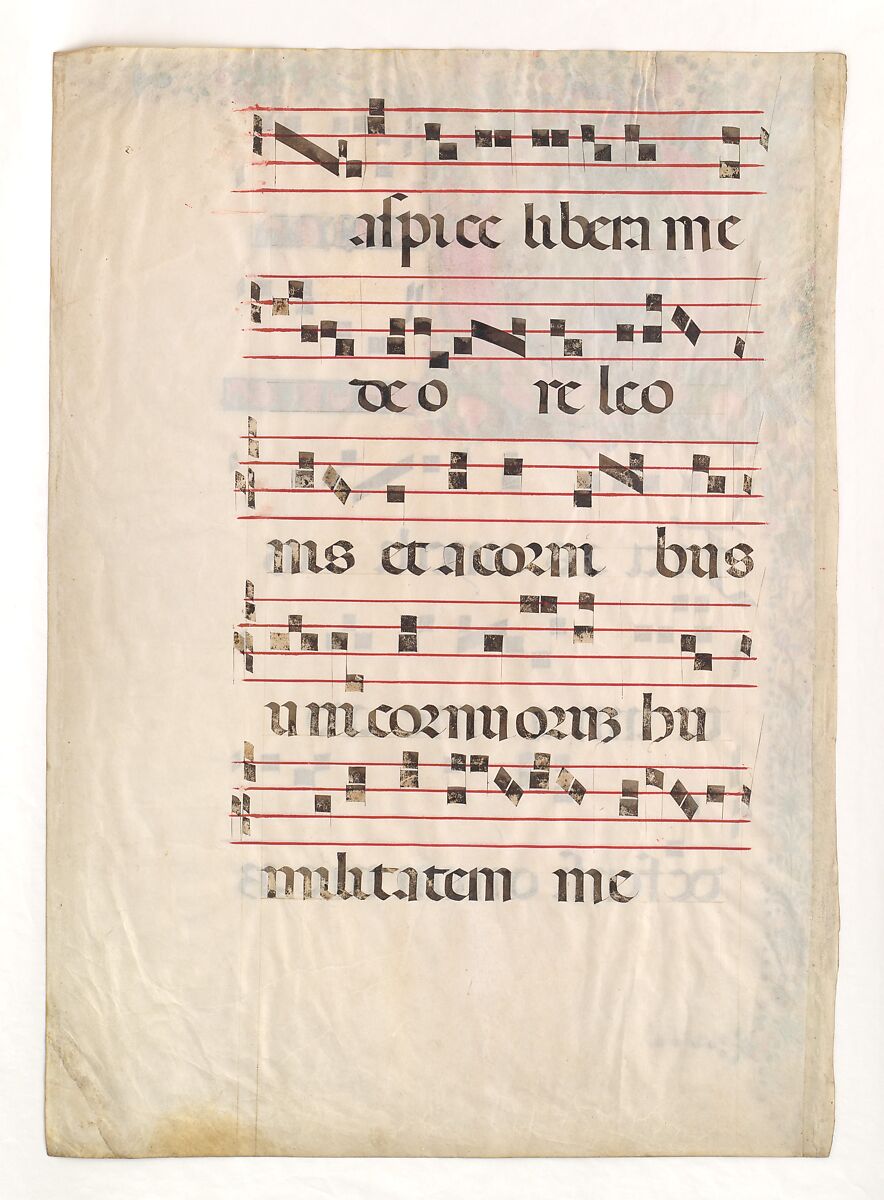 aſpice libera me
de o re leo
nis et a corni bus
unicornuorum hu
militatem me